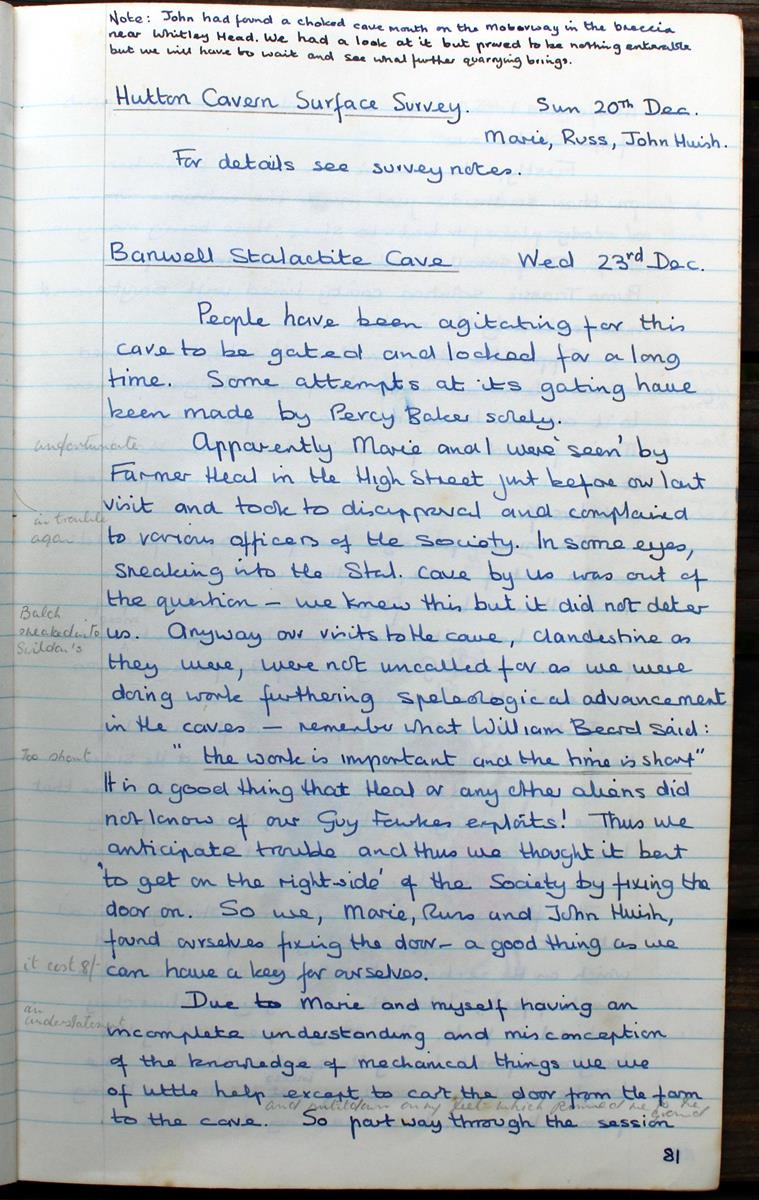 Note: John had found a choked cave mouth on the Motorway in the breccia
near Whitley Head. We had a look at it but proved to be nothing enterable
but we will have to wait and see what further quarrying brings.
Hutton Cavern Surface Survey. Sun 20th Dec.
Marie, Russ, John Huish.
For details see survey notes.
Banwell Stalactite Cave Wed 23rd Dec.
People have been agitating for this
cave to be gated and locked for a long
time. Some attempts at its gating have
been made by Percy Baker solely.
unfortunate
Apparently Marie and I were 'seen' by
Farmer Heal in the High Street just before our last
visit and took to disapproval and complained
in trouble
again
to various officers of the Society. In some eyes,
sneaking into the Stal. Cave by us was out of
the question – we knew this but it did not deter
Balch
sneaked into
Swildon's
us. Anyway our visits to the cave, clandestine as
they were, were not uncalled for as we were
doing work furthering speleological advancement
in the caves – remember what William Beard said:
Too short
" the work is important and the time is short"
It is a good thing that Heal or any other aliens did
not know of our Guy Fawkes exploits! Thus we
anticipate trouble and thus we thought it best
'to get on the right-side' of the Society by fixing the
door on. So we, Marie, Russ and John Huish,
found ourselves fixing the door – a good thing as we
it cost 8/-
can have a key for ourselves.
Due to Marie and myself having an
an
understatement
incomplete understanding and misconception
of the knowledge of mechanical things we we
of little help except to cart the door from the farm
and put it down on my feet which pinned me to the ground
to the cave. So part way through the session
81